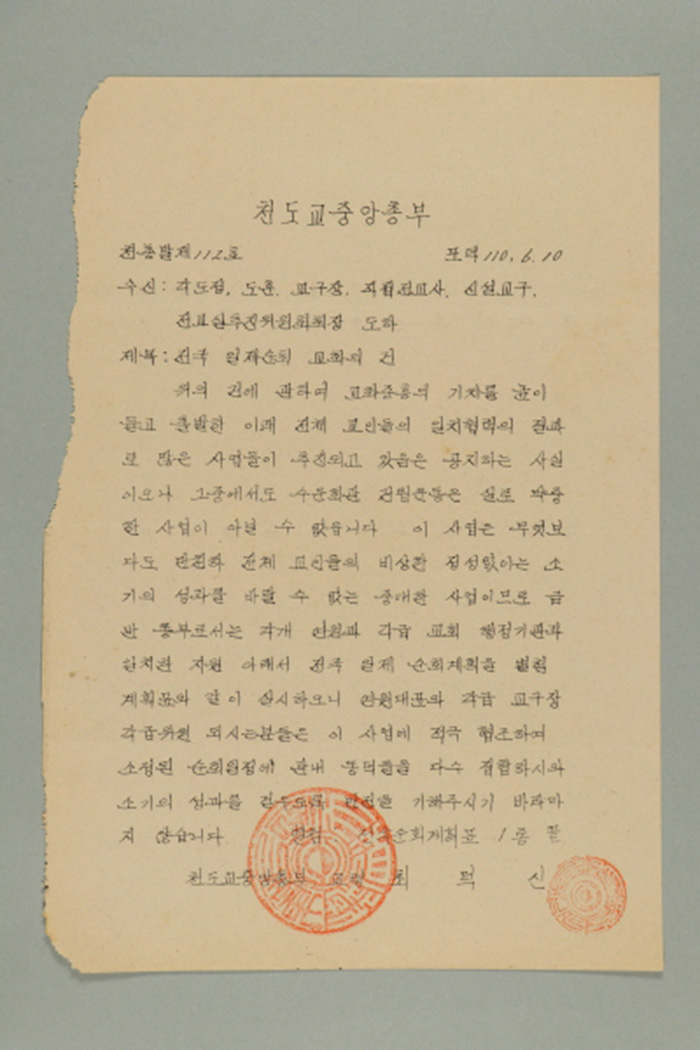 천도교중앙총부
천총발제112호 포덕 110. 6. 10
수신: 각도정, 도훈, 교구장, 직접전교사, 신설교구,
전교실추진위원회회장 도하
제목: 전국 일제순회 교화의 건
위의 건에 관하여 교화중흥의 기치를 높이
들고 출발한 이래 전체 교인들의 일치협력의 결과
로 많은 사업들이 추진되고 있음은 공지하는 사실
이오나 그중에서도 수운회관 건립운동은 실로 막중
한 사업이 아닐 수 없읍니다 이 사업은 무엇보
다도 전체 교인들의 비상한 정성없이는 소
기의 성과를 바랄 수 없는 중대한 사업이므로 금
반 총부로서는 각개 연원과 각급 교회 행정기관과
일치한 자원 아래서 전국 일제 순회계획을 별첨
계획표와 같이 실시하오니 연원대표와 각급 교구장
각급위원 되시는분들은 이 사업에 적극 협조하여
소정된 순회일정에 관내 동덕들을 다수 집합하시와
소기의 성과를 거두도록 만전을 기해주시기 바라마
지 않습니다 별첨 전국순회계획표 1통 끝
천도교중앙총부 교령 최 덕 신